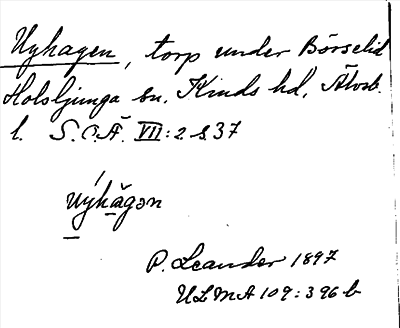 Nyhagen, torp under Börselid
Holsljunga sn. Kinds hd, Älvsb.
l. S.O.Ä. VII:2 s.37
nýhăgən
P. Leander 1897
ULMA 109:396 b